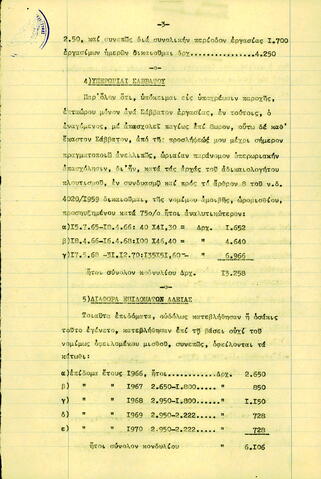 -3-
2.50, καί συνεπῶς διά συνολικήν περίοδον ἐργασίας 1.700
ἐργασίμων ἡμερῶν δικαιοῦμαι δρχ.................4.250
-ο-
4)ΥΠΕΡΩΡΙΑΙ ΣΑΒΒΑΤΟΥ
Παρ'ὅλον ὅτι, ὑπόκειμαι εἰς ὑποχρέωσιν παροχῆς,
ἑπταώρου μόνον ἀνά Σάββατον ἐργασίας, ἐν τούτοις, ὁ
ἐναγόμενος, μέ ἀπασχολεῖ παγίως ἐπί 8ωρον, οὕτω δέ καθ'
ἕκαστον Σάββατον, ἀπό τῆς προσλήψεώς μου μέχρι σήμερον
πραγματοποιῶ ἀνελλιπῶς, ὡριαίαν παράνομον ὑπερωριακήν
ἀπασχόλησιν, δι'ἥν, κατά τάς ἀρχάς τοῦ ἀδικαιολογήτου
πλουτισμοῦ, ἐν συνδυασμῷ καί πρός τό ἄρθρον 8 τοῦ ν.δ.
4020/1959 δικαιοῦμαι, τῆς νομίμου ἀμοιβῆς, ὡρομισθίου,
προσηυξημένου κατά 75ο/ο ἤτοι ἀναλυτικώτερον:
α)15.7.65-18.4.66: 40 Χ41.30 = Δρχ. 1.652
β)18.4.66-16.4.68:100 Χ46.40 = " 4.640
γ)17.5.68 -31.12.70:135Χ51,60-= " 6.966
ἤτοι σύνολον κονδυλίου Δρχ. 13.258
-ο-
5)ΔΙΑΦΟΡΑ ΕΠΙΔΟΜΑΤΩΝ ΑΔΕΙΑΣ
Τοιαῦτα ἐπιδόματα, οὐδόλως κατεβλήθησαν ἤ ὁσάκις
τοῦτο ἐγένετο, κατεβλήθησαν ἐπί τῇ βάσει οὐχί τοῦ
νομίμως ὀφειλομένου μισθοῦ, συνεπῶς, ὀφείλονται τά
κάτωθι:
α)ἐπίδομα ἔτους 1966, ἤτοι..... Δρχ. 2.650
β) " " 1967 2.650-1.800..... " 850
γ) " " 1968 2.950-1.800.... " 1.150
δ) " " 1969 2.950-2.222..... " 728
ε) " " 1970 2.950-2.222..... " 728
ἤτοι σύνολον κονδυλίου " 6.106